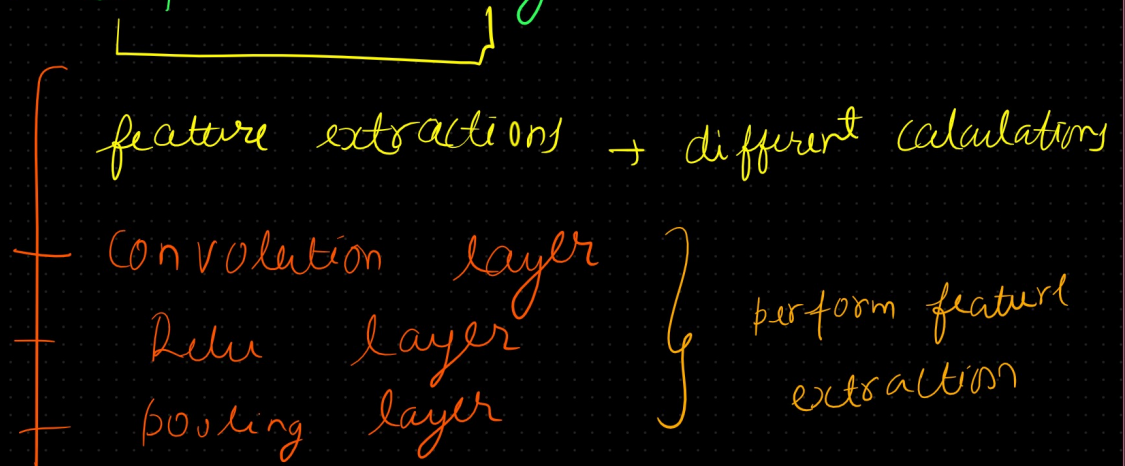 feature extractions → different calculations
Convolution layer
Relu layer
pooling layer
perform feature
extraction